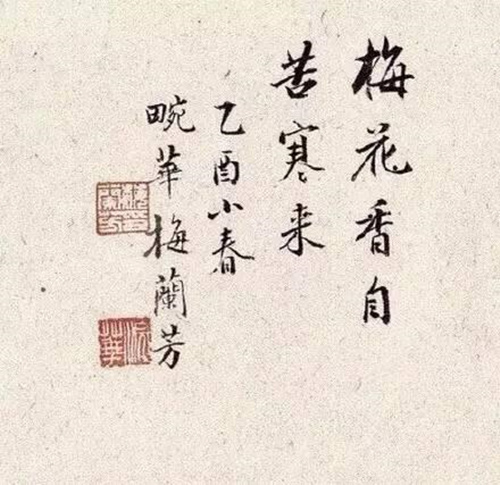 梅花香自
苦寒来
乙酉小春
畹华梅蘭芳